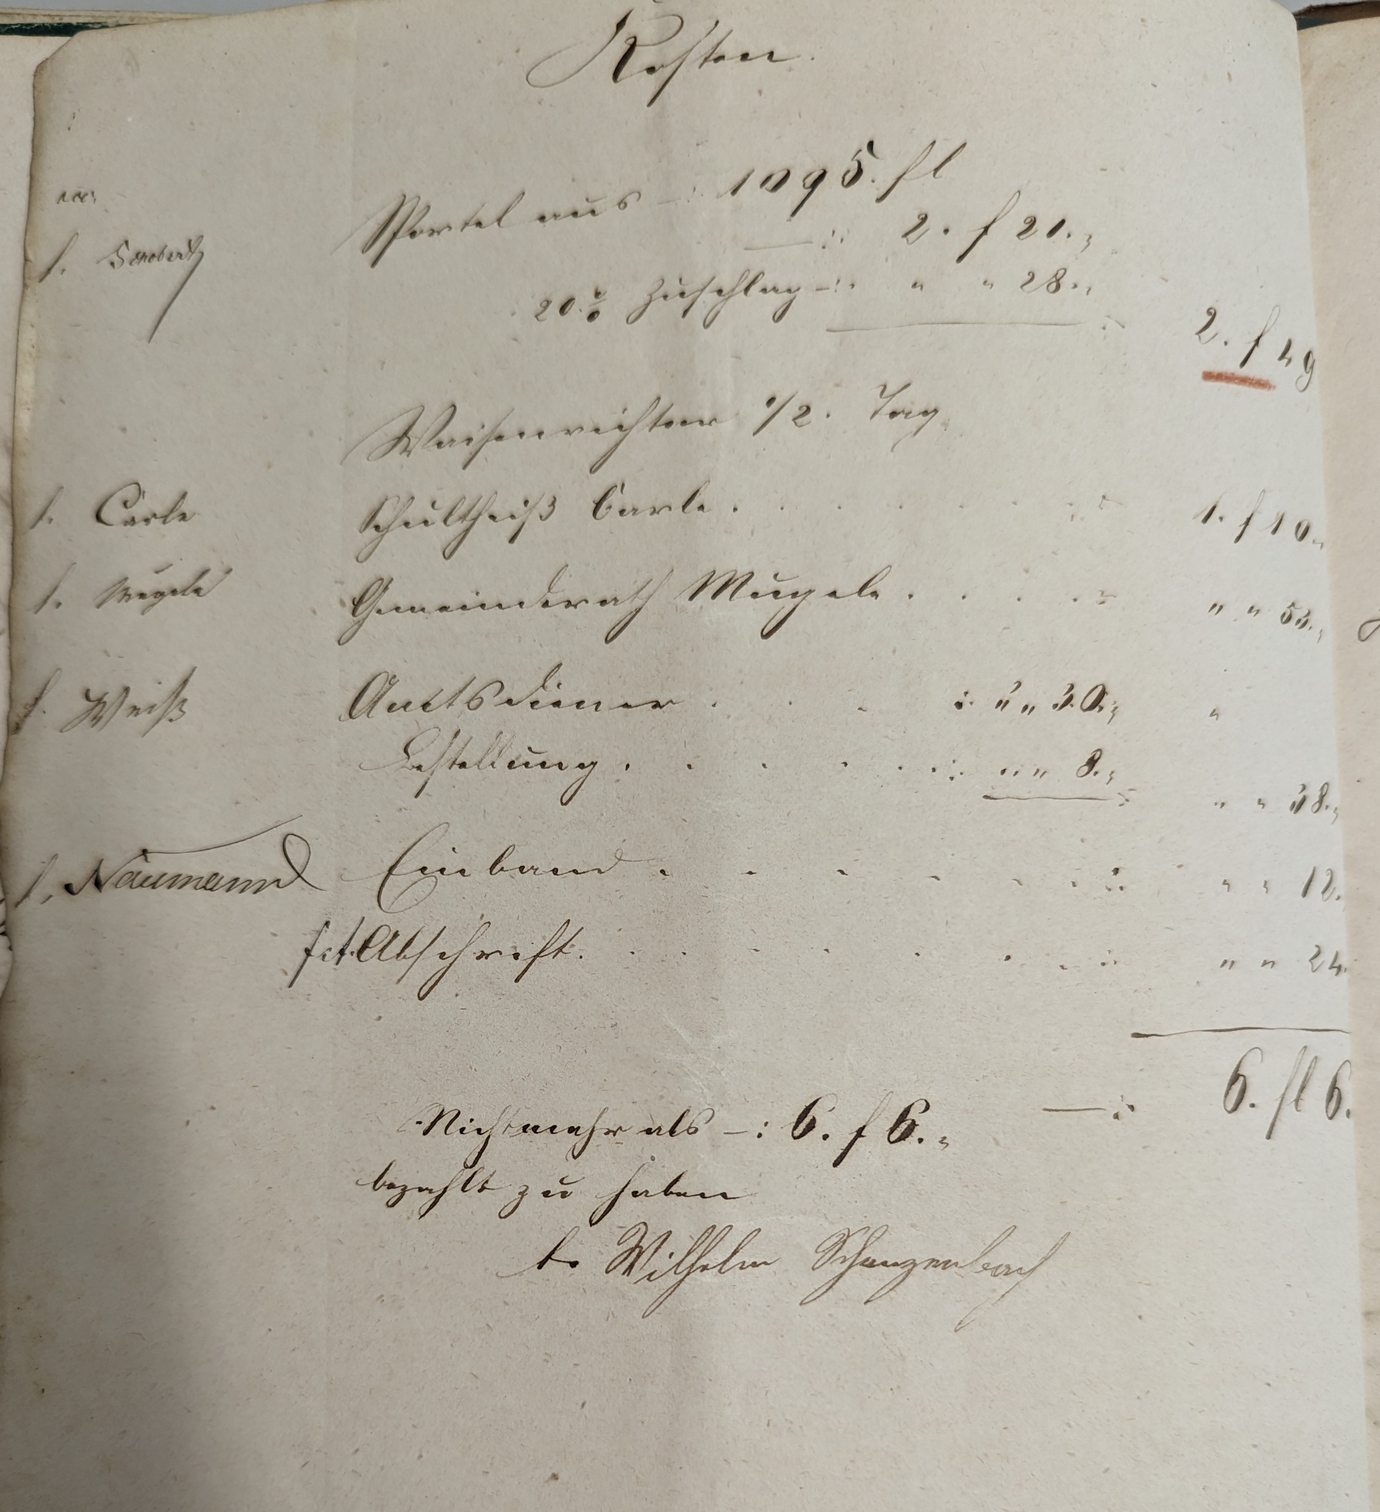 Kosten.
Sportel aus -: 1095. fl
—:: 2. f 21.,
t. Schobert
20.% Zuschlag -:. " " 28.,
2. f 49
Waisenrichter 1/2. Tag
t. Carle Schultheiß Carle. . . . . . 1. f 10.
t. Mugele Gemeinderath Mugele. . . . " " 53.,
t. Weiß Amtsdiener . . . : " " 30., "
Bestellung. . . . . . : " " 8., " " 38.,
t. Naumann Einband . . . . . . : " " 12.
fct. Abschrift. . . . . . . " " 24.
—: 6. fl 6.
Nicht mehr als -: 6. f 6.,
bezahlt zu haben
t. Wilhelm Schanzenbach